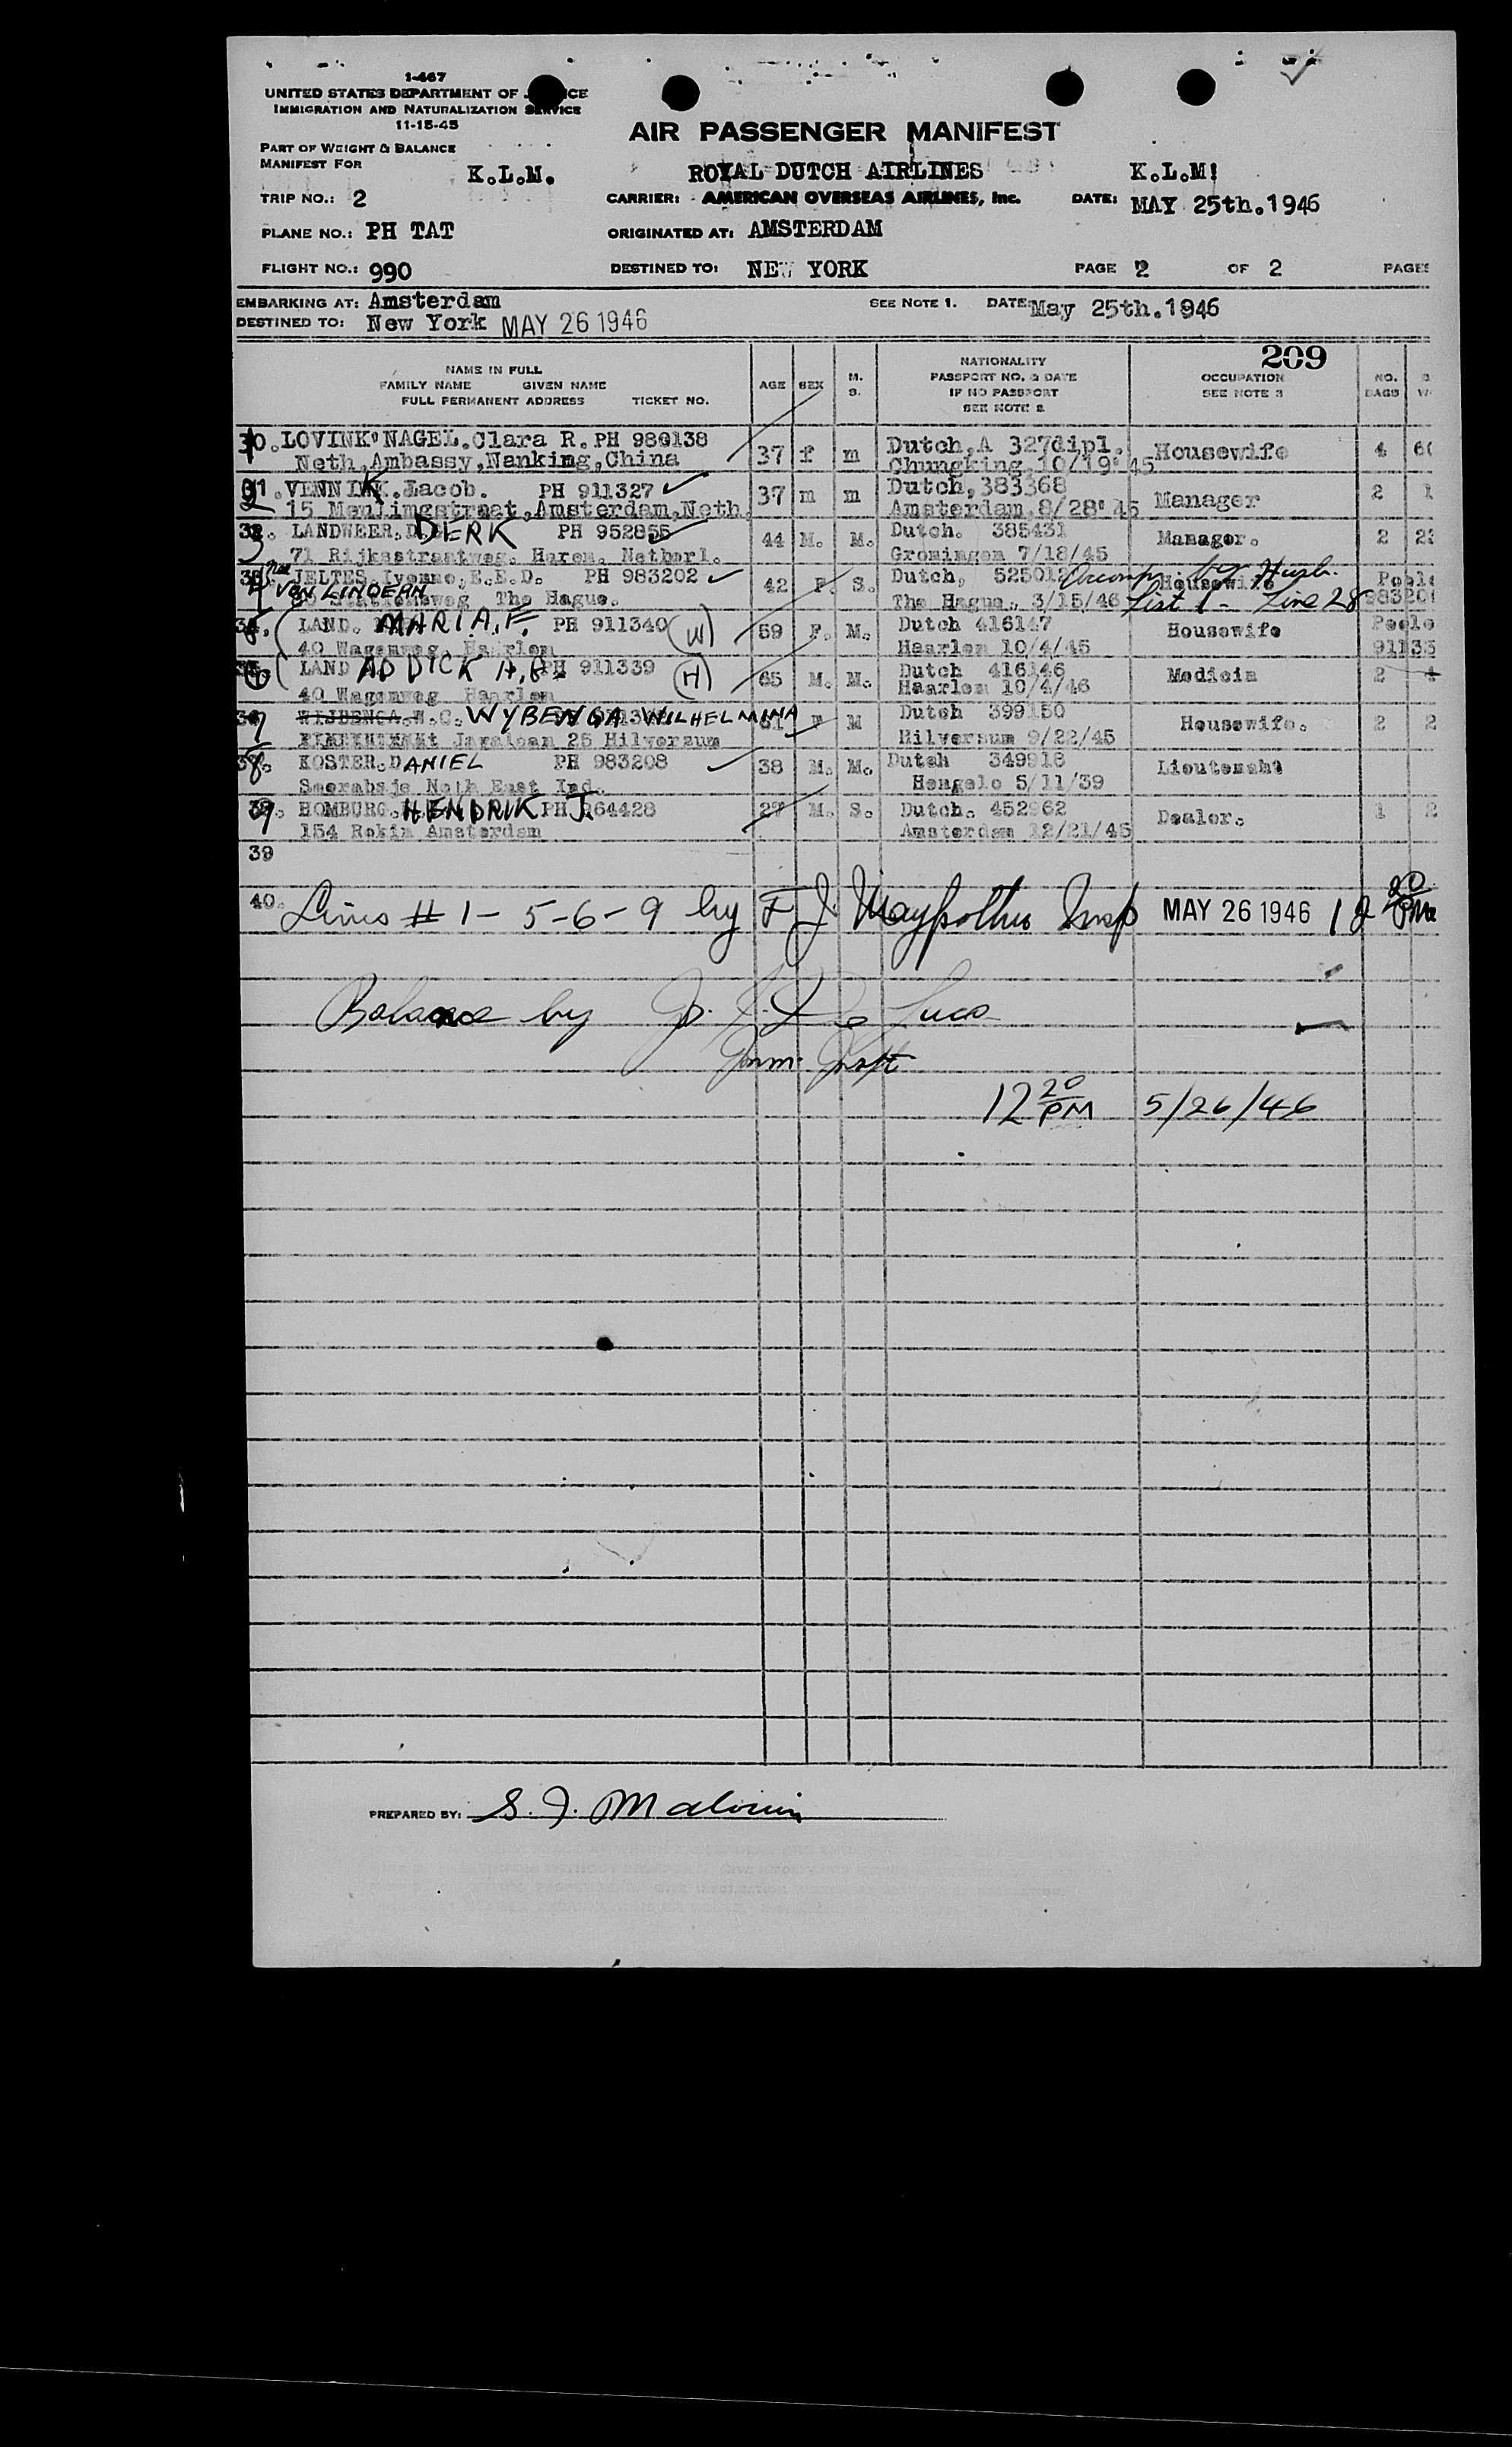 1-467
UNITED STATES DEPARTMENT OF
IMMIGRATION AND NATURALIZATION SERVICE
11-15-45
AIR PASSENGER MANIFEST
PART OF WEIGHT & BALANCE
MANIFEST FOR K.L.M. ROYAL DUTCH AIRLINES K.L.M!
TRIP NO.: 2 CARRIER: AMERICAN OVERSEAS AIRLINES, Inc. DATE: MAY 25th.1946
PLANE NO.: PH TAT ORIGINATED AT: AMSTERDAM
FLIGHT NO.: 990 DESTINED TO: NEW YORK PAGE 2 OF 2 PAGES
EMBARKING AT: Amsterdam SEE NOTE 1. DATE: May 25th.1946
DESTINED TO: New York MAY 26 1946
209
NAME IN FULL
FAMILY NAME GIVEN NAME
FULL PERMANENT ADDRESS TICKET NO.
AGE SEX M. S.
NATIONALITY
PASSPORT NO. & DATE
IF NO PASSPORT
SEE NOTE 2
OCCUPATION
SEE NOTE 3
NO.
BAGS
30. LOVINK'NAGEL.Clara R. PH 980138 37 f m Dutch,A 327dipl. Housewife 4
Neth.Ambassy,Nanking,China Chungking,10/19'45
2 VENNINK.Jacob. PH 911327 37 m m Dutch,383368 Manager 2
15 Amsterdam,Neth. Amsterdam,8/28'45
3 LANDWEER.D. DERK PH 952855 44 M. M. Dutch. 385431 Manager. 2
71 Rijksstraatweg. Haren. Netherl. Groningen 7/18/45
JELTES. Ivonne,E.E.D. PH 983202 42 F. S. Dutch, 525012 Housewife Accomp by Husb.
VON LINDERN The Hague. The Hague. 3/15/46 List 1 - Line 28
5 LAND. MARIA.F. PH 911340 (W) 59 F. M. Dutch 416147 Housewife
40 Wagenweg. Haarlem Haarlem 10/4/45
6 LAND ADDICK PH 911339 (H) 65 M. M. Dutch 416146 Medicin 2
40 Wagenweg Haarlem Haarlem 10/4/46
7 WIJBENGA.W.C. WYBENGA WILHELMINA F M Dutch 399150 Housewife. 2
25 Hilversum Hilversum 9/22/45
8. KOSTER.DANIEL PH 983208 38 M. M. Dutch 349918 Lieutenant
Soerabaja Neth East Ind. Hengelo 5/11/39
9 HOMBURG. HENDRIK J. PH 964428 27 M. S. Dutch. 452962 Dealer. 1
154 Rokin Amsterdam Amsterdam 12/21/45
39
40. Lines # 1- 5-6-9 by F J Insp MAY 26 1946 12 20 PM
Balance by
Imm. Inspt
12 20 PM 5/26/46
PREPARED BY: S. J.